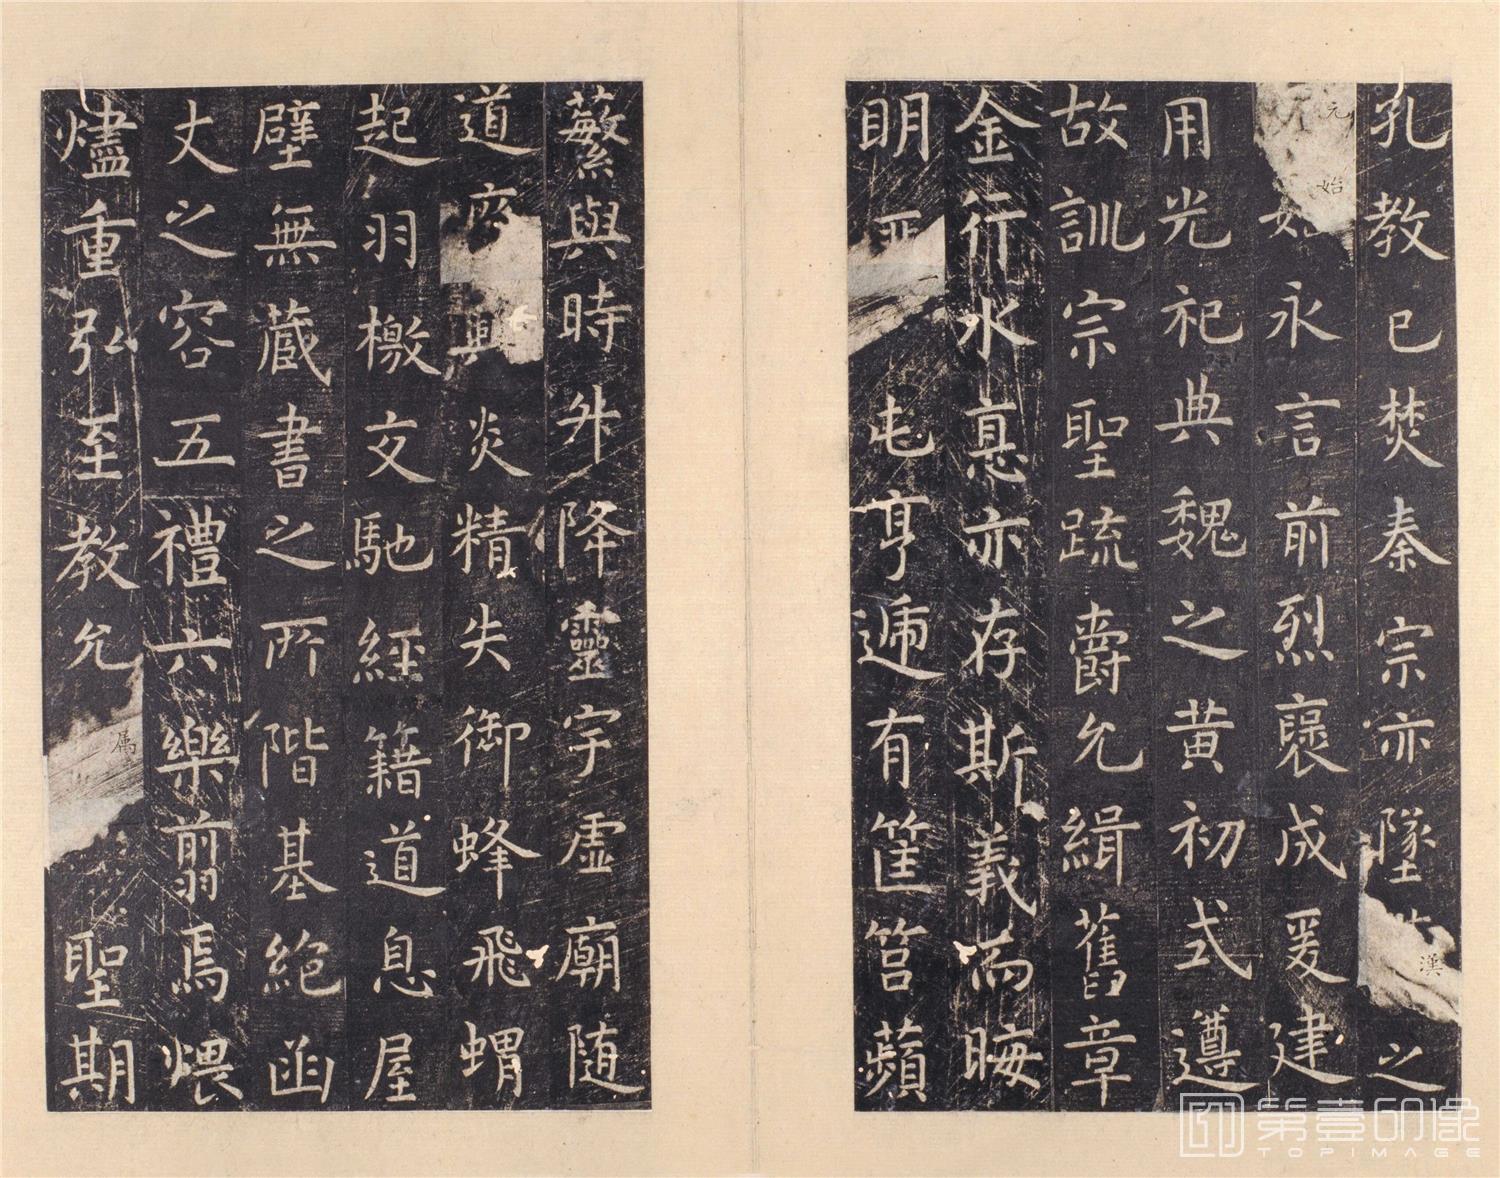 孔教已焚秦宗亦墜漢之
元始永言前烈褒成爰建
用光祀典魏之黄初式遵
故訓宗聖疏爵允緝舊章
金行水悳亦存斯義而晦
明匪屯亨遞有筐筥蘋
蘩與時升降靈宇虛廟隨
道廢興炎精失御蜂飛蝟
起羽檄交馳經籍道息屋
壁無藏書之所階基絕函
丈之容五禮六樂翦焉煨
燼重弘至教允属聖期
第壹印像
TOPIMAGE